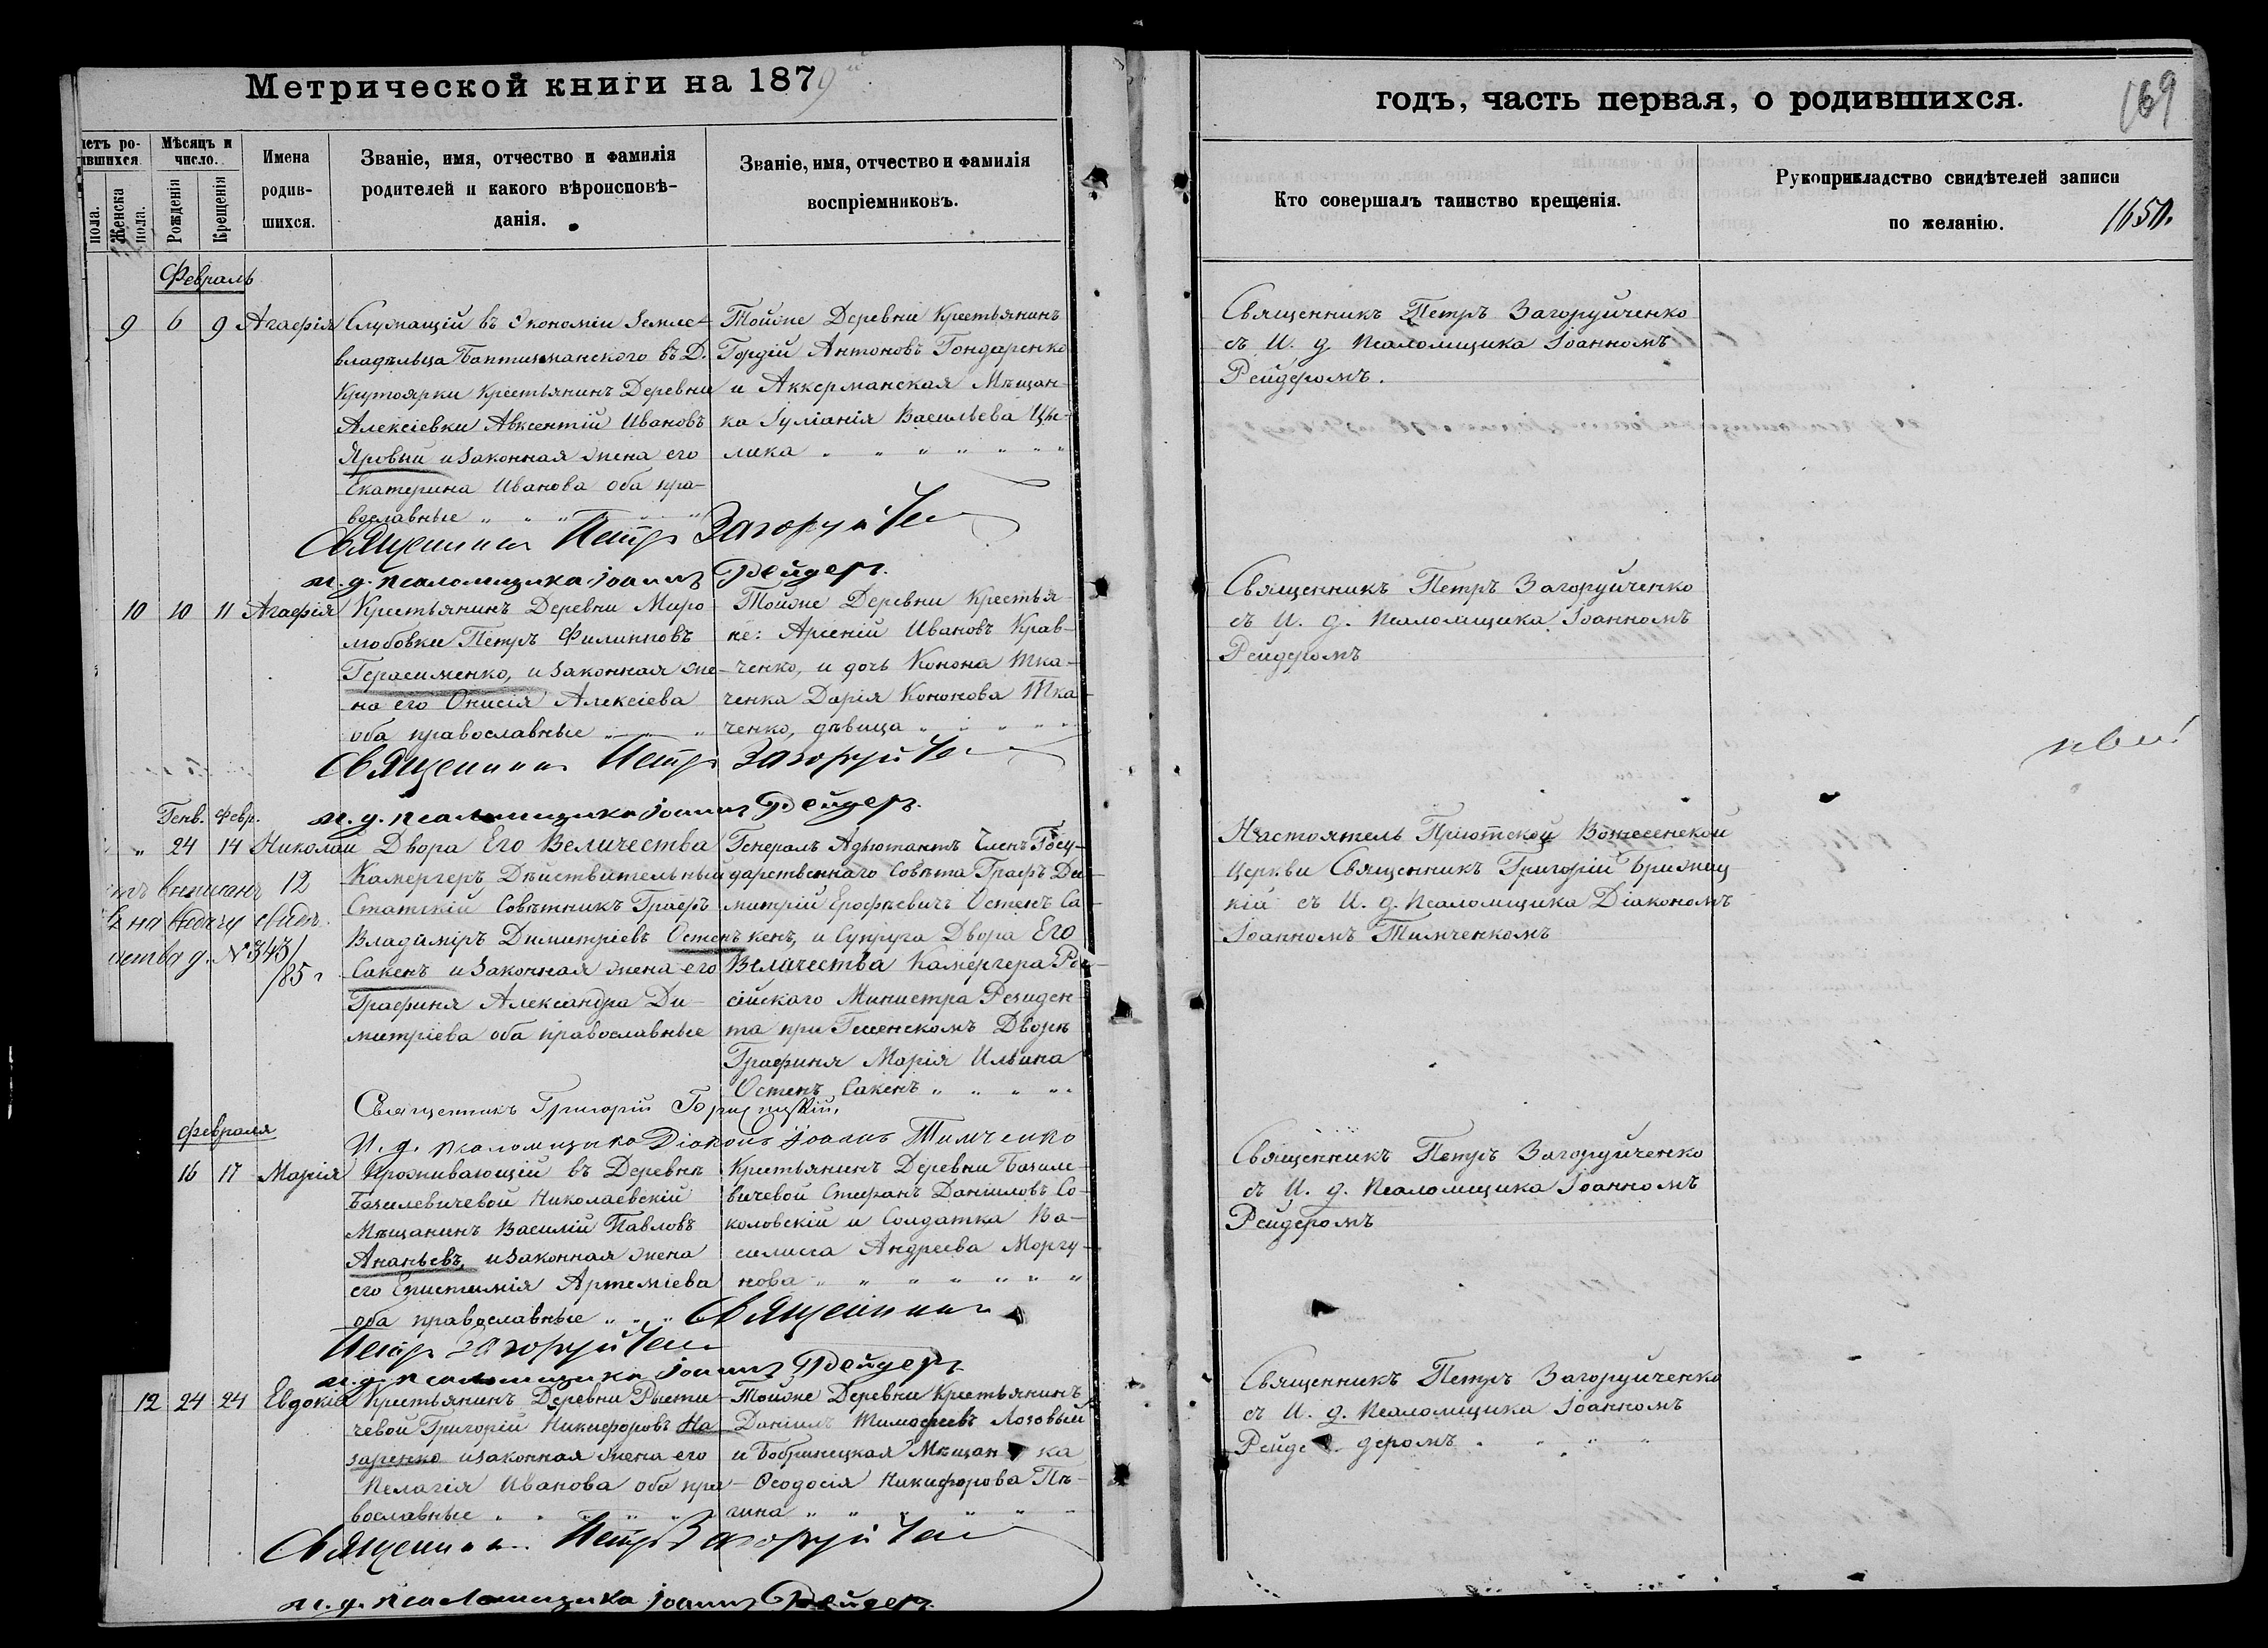 Метрической книги на 1879й
годъ, часть первая, о родившихся.
169
1650.
Мѣсяцъ и число.
Женска пола.
Рожденія
Крещенія
Имена родив-
шихся.
Званіе, имя, отчество и фамилія
родителей и какого вѣроисповѣ-
данія.
Званіе, имя, отчество и фамилія
воспріемниковъ.
Кто совершалъ таинство крещенія.
Рукоприкладство свидѣтелей записи
по желанію.
Февраль
9 6 9 Агафія
Служащій въ Экономіи Земле-
владѣльца въ Д.
Крутоярки Крестьянинъ Деревни
Алексіевки Авксентій Ивановъ
Яровый и законная жена его
Екатерина Иванова оба пра-
вославные
Тойже Деревни Крестьянинъ
Гордій Антоновъ Гондаренко
и Аккерманская Мѣщан-
ка Іуліанія Васильева Цы-
лика
Священникъ Петръ Загоруйченко
съ И. д. Псаломщика Іоанномъ
Рейдеромъ.
Священникъ Петръ Загоруйче
и. д. псаломщика Іоаннъ Рейдеръ.
10 10 11 Агафія
Крестьянинъ Деревни Миро
любовки Петръ Филипповъ
Герасименко, и законная же-
на его Онисія Алексіева
оба православные
Тойже Деревни Крестья-
не: Арсеній Ивановъ Крав-
ченко, и дочь Конона Тка-
ченка Дарія Кононова Тка-
ченко, дѣвица
Священникъ Петръ Загоруйченко
съ И. д. Псаломщика Іоанномъ
Рейдеромъ
Священникъ Петръ Загоруйче
и. д. псаломщика Іоаннъ Рейдеръ.
Генв. Февр.
" 24 14 Николай
12
на выдачу свид.
№ 343/
/85 г
Двора Его Величества
Камергеръ, Дѣйствительный
Статскій Совѣтникъ Графъ
Владиміръ Димитріевъ Остенъ
Сакенъ и законная жена его
Графиня Александра Ди-
митріева оба православные
Генералъ Адъютантъ Членъ Госу-
дарственнаго Совѣта Графъ Ди-
митрій Ерофѣевичъ Остенъ Са-
кенъ, и Супруга Двора Его
Величества Камергера Рос-
сійскаго Министра Резиден-
та при Гессенскомъ Дворѣ
Графиня Марія Ильина
Остенъ Сакенъ
Настоятель Пріютской Вознесенской
Церкви Священникъ Григорій Бржиц
кій съ И. д. Псаломщика Діакономъ
Іоанномъ Тимченкомъ
Священникъ Григорій
И. д. псаломщика Діаконъ Іоаннъ Тимченко
Февраля
16 17 Марія
Проживающій въ Деревнѣ
Базилевичевой Николаевскій
Мѣщанинъ Василій Павловъ
Ананьевъ, и законная жена
его Епистимія Артеміева
оба православные
Крестьянинъ Деревни Базиле-
вичевой Стефанъ Даніиловъ Со-
коловскій и Солдатка Ва-
силиса Андреева Моргу-
нова
Священникъ Петръ Загоруйченко
съ И. д. Псаломщика Іоанномъ
Рейдеромъ
Священникъ
Петръ Загоруйче
и. д. псаломщика Іоаннъ Рейдеръ
12 24 24 Евдокія
Крестьянинъ Деревни
чевой Григорій Никифоровъ На
заренко и законная жена его
Пелагія Иванова оба пра-
вославные
Тойже Деревни Крестьянинъ
Даніилъ Тимофеевъ Лозовый
и Бобринецкая Мѣщан ка
Ѳеодосія Никифорова Пѣ-
гина
Священникъ Петръ Загоруйченко
съ И. д. Псаломщика Іоанномъ
Рейде деромъ
Священникъ Петръ Загоруйче
и. д. псаломщика Іоаннъ Рейдеръ.